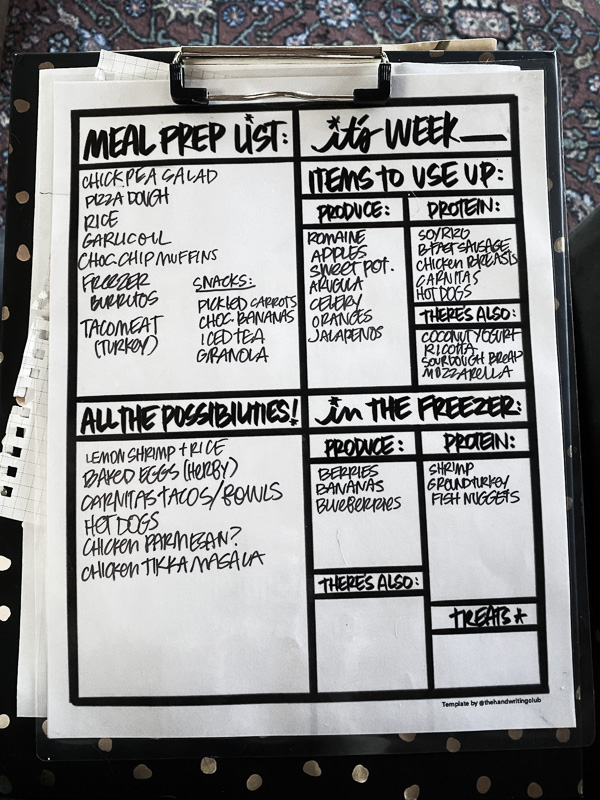 MEAL PREP LIST:
CHICKPEA SALAD
PIZZA DOUGH
RICE
GARLIC OIL
CHOC. CHIP MUFFINS
FREEZER
BURRITOS
TACO MEAT
(TURKEY)
SNACKS:
PICKLED CARROTS
CHOC. BANANAS
ICED TEA
GRANOLA
it's WEEK__
ITEMS TO USE UP:
PRODUCE:
ROMAINE
APPLES
SWEET POT.
ARUGULA
CELERY
ORANGES
JALAPENOS
PROTEIN:
SOYRIZO
B-FAST SAUSAGE
CHICKEN BREASTS
CARNITAS
HOT DOGS
THERE'S ALSO:
COCONUT YOGURT
RICOTTA
SOURDOUGH BREAD
MOZZARELLA
ALL THE POSSIBILITIES!
LEMON SHRIMP + RICE
BAKED EGGS (HERBY)
CARNITAS TACOS/BOWLS
HOT DOGS
CHICKEN PARMESAN?
CHICKEN TIKKA MASALA
in THE FREEZER:
PRODUCE:
BERRIES
BANANAS
BLUEBERRIES
THERE'S ALSO:
PROTEIN:
SHRIMP
GROUND TURKEY
FISH NUGGETS
TREATS*
Template by @thehandwritingclub